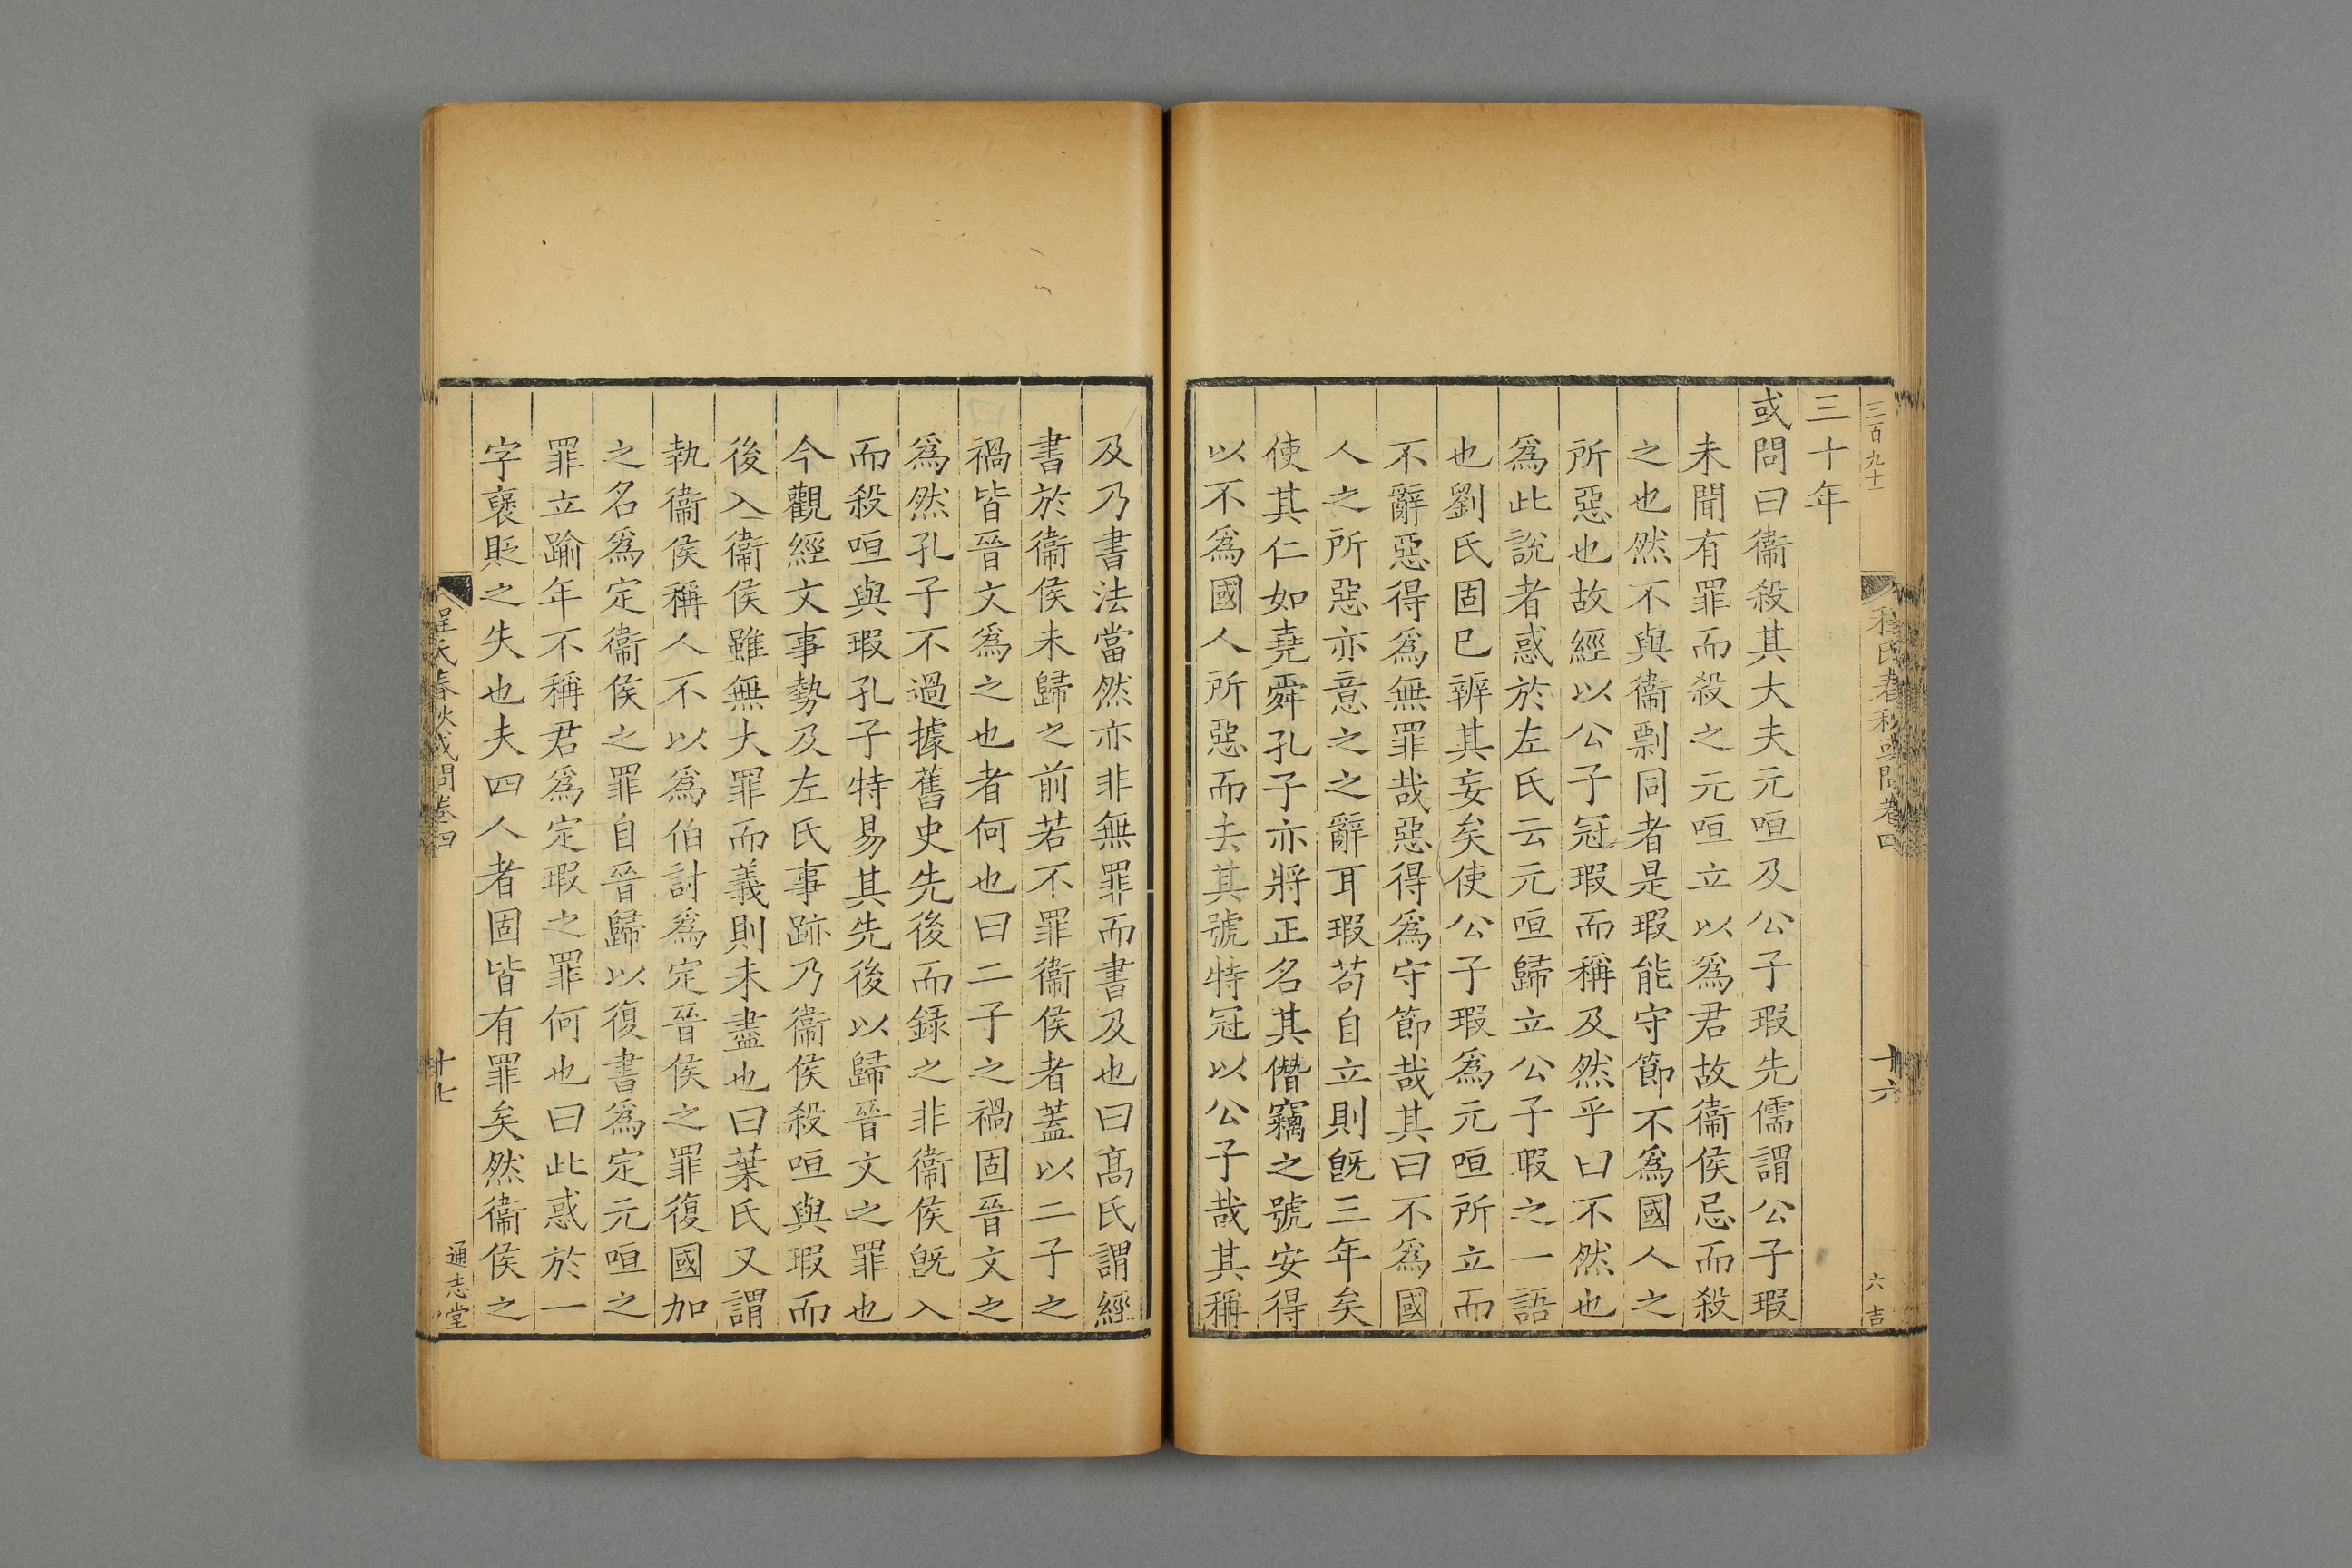 三百九十一
程氏春秋或問卷四
十六
六吉
三十年
或問曰衞殺其大夫元咺及公子瑕先儒謂公子瑕
未聞有罪而殺之元咺立以爲君故衞侯忌而殺
之也然不與衞剽同者是瑕能守節不爲國人之
所惡也故經以公子冠瑕而稱及然乎曰不然也
爲此說者惑於左氏云元咺歸立公子瑕之一語
也劉氏固巳辨其妄矣使公子瑕爲元咺所立而
不辭惡得爲無罪哉惡得爲守節哉其曰不爲國
人之所惡亦意之之辭耳瑕苟自立則旣三年矣
使其仁如堯舜孔子亦將正名其僭竊之號安得
以不爲國人所惡而去其號特冠以公子哉其稱
及乃書法當然亦非無罪而書及也曰髙氏謂經
書於衞侯未歸之前若不罪衞侯者蓋以二子之
禍皆晉文爲之也者何也曰二子之禍固晉文之
爲然孔子不過據舊史先後而録之非衞侯旣入
而殺咺與瑕孔子特易其先後以歸晉文之罪也
今觀經文事勢及左氏事跡乃衞侯殺咺與瑕而
後入衞侯雖無大罪而義則未盡也曰葉氏又謂
執衞侯稱人不以爲伯討爲定晉侯之罪復國加
之名爲定衞侯之罪自晉歸以復書爲定元咺之
罪立踰年不稱君爲定瑕之罪何也曰此惑於一
字襃貶之失也夫四人者固皆有罪矣然衞侯之
程氏春秋或問卷四
十七
通志堂